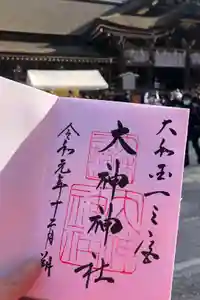 大和国一之宮
大神神社
令和元年十二月朔